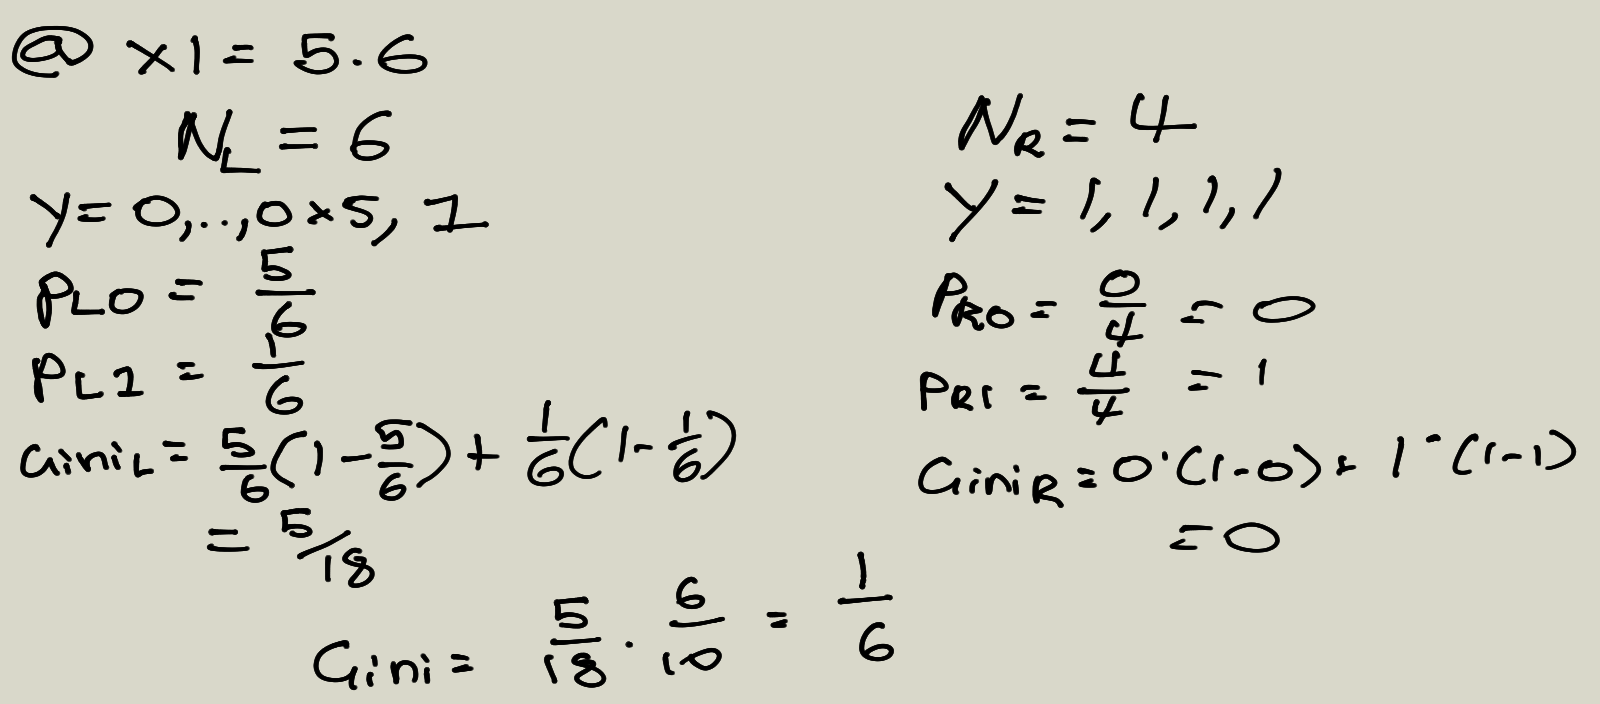 @ x1 = 5.6
N_L = 6
y = 0,..,0 x 5, 1
P_L0 = 5/6
P_L1 = 1/6
Gini_L = 5/6 (1 - 5/6) + 1/6 (1 - 1/6)
= 5/18
N_R = 4
y = 1, 1, 1, 1
P_R0 = 0/4 = 0
P_R1 = 4/4 = 1
Gini_R = 0·(1-0) + 1·(1-1)
= 0
Gini = 5/18 · 6/10 = 1/6